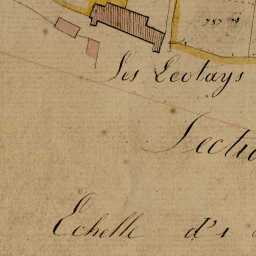 787
Les Leotays
Secti
Echelle d'1